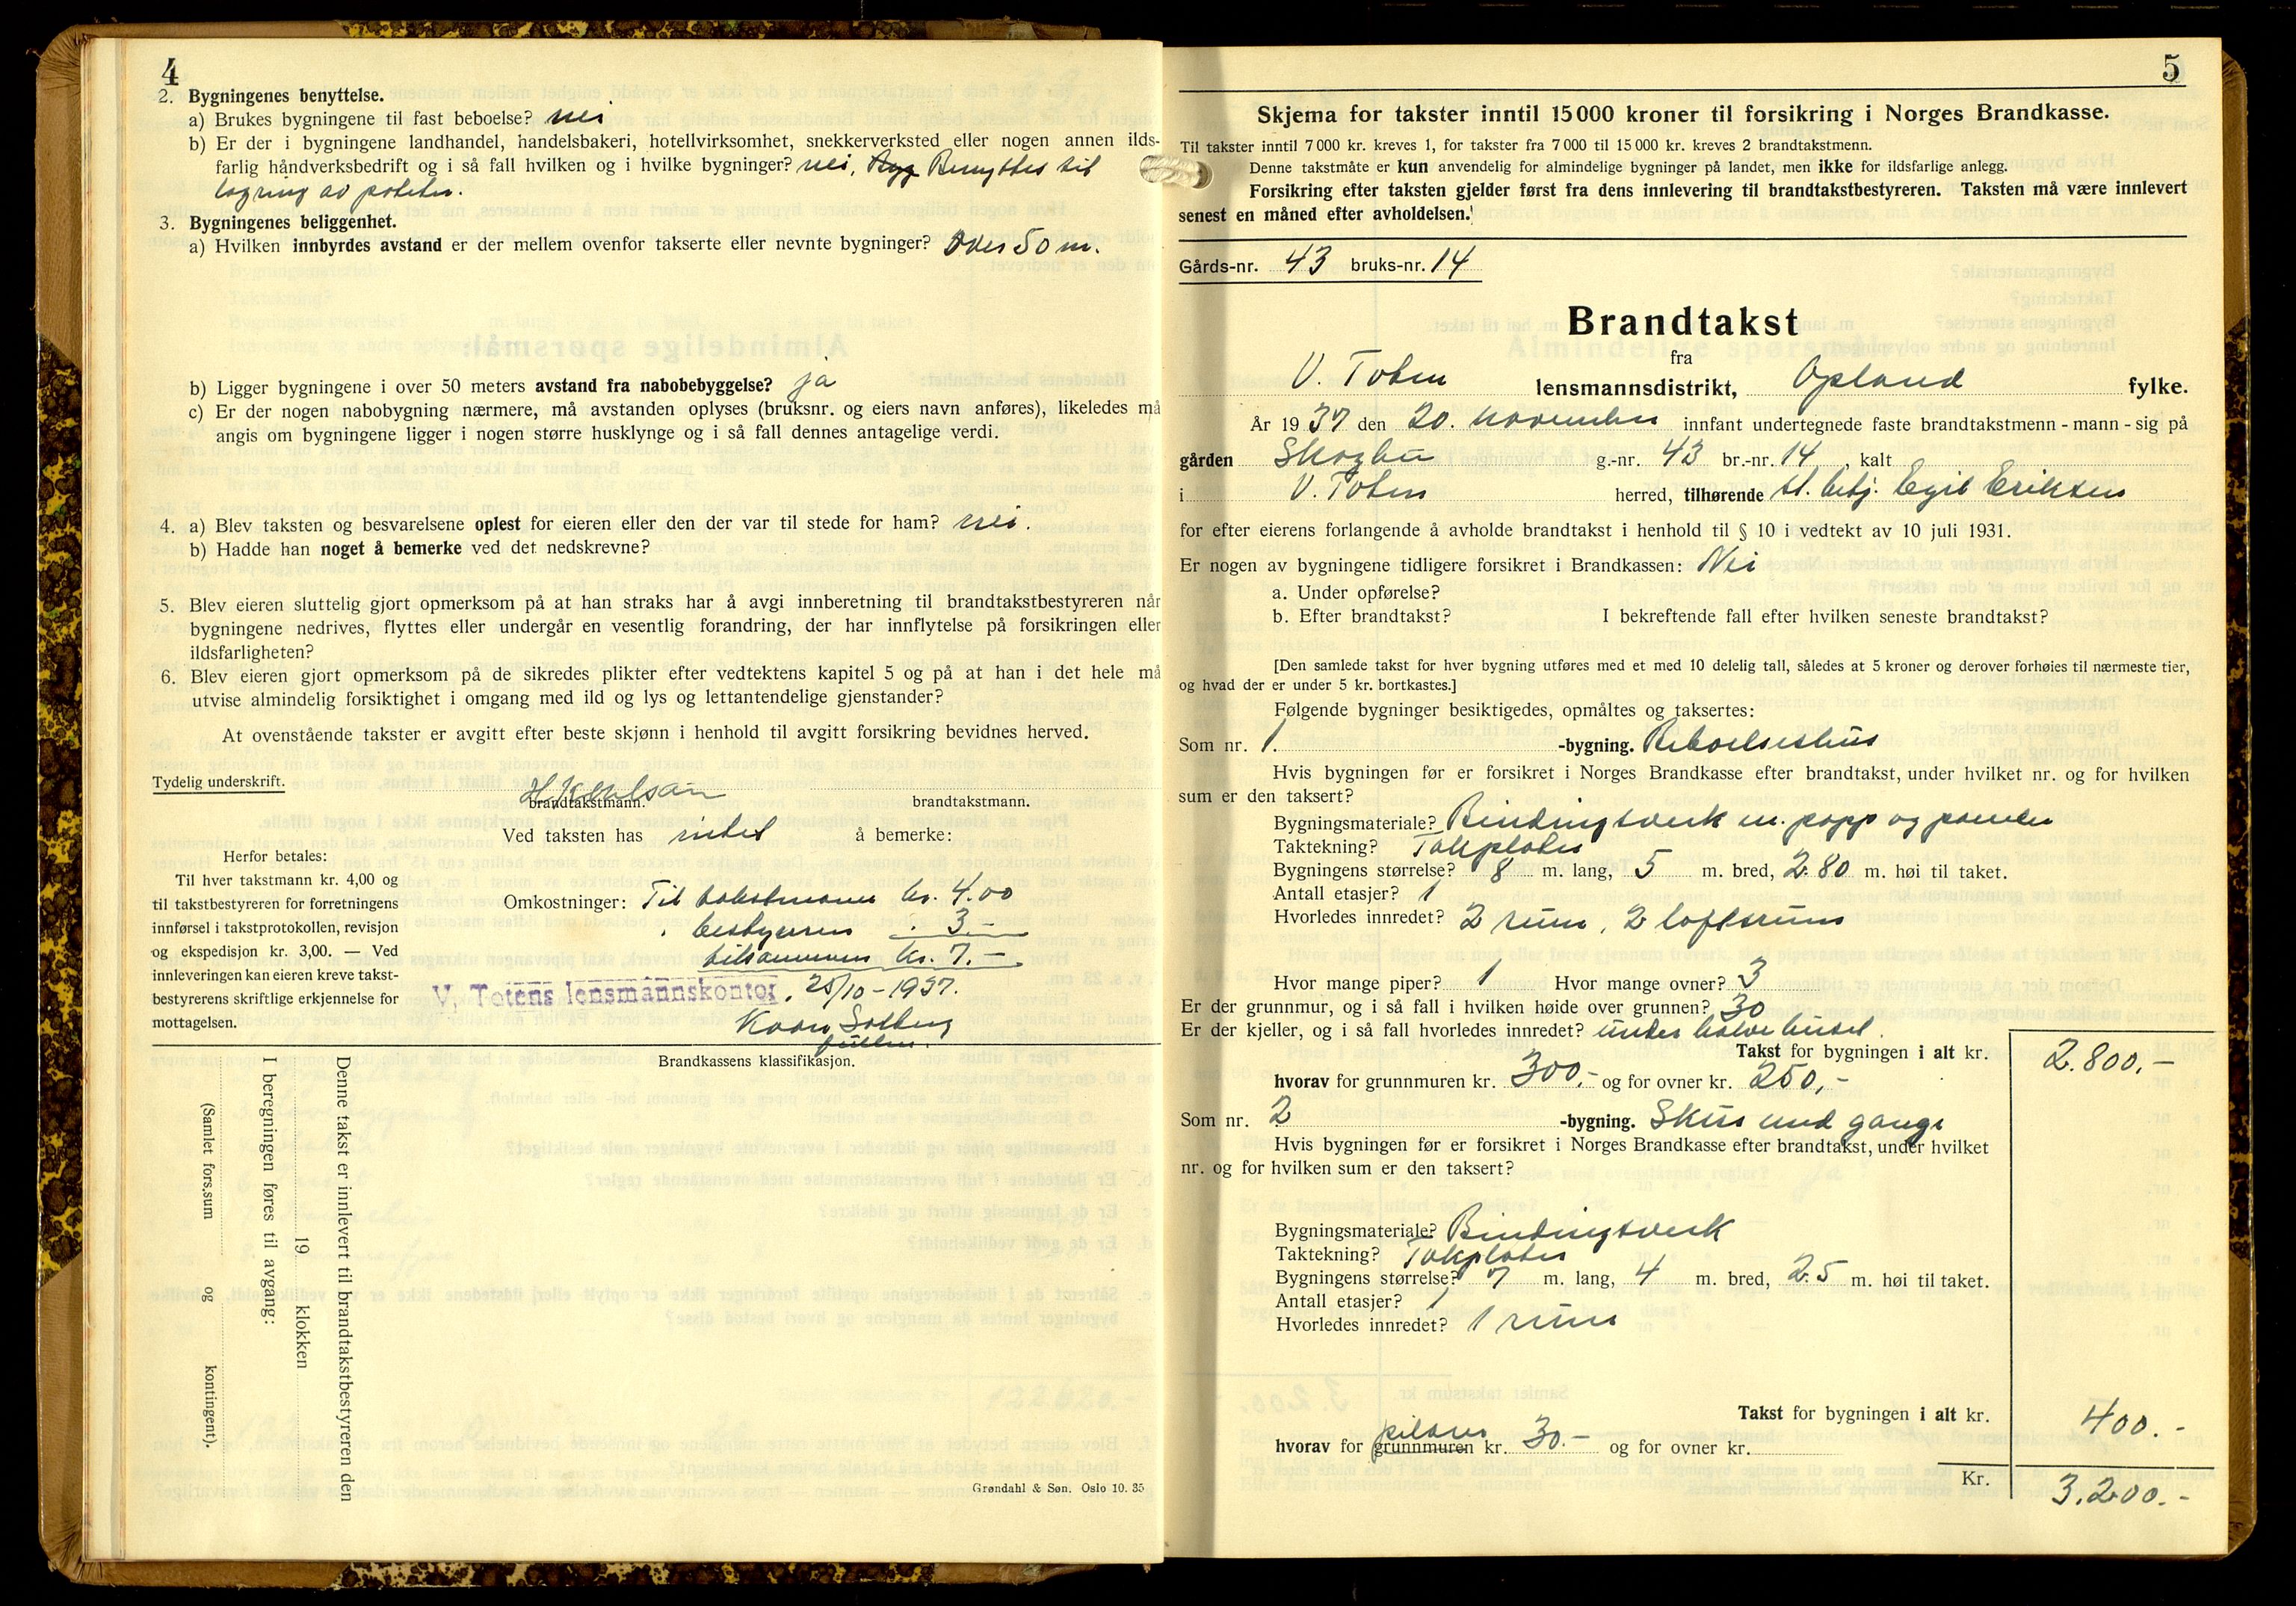 4
2. Bygningenes benyttelse.
a) Brukes bygningene til fast beboelse? nei
b) Er der i bygningene landhandel, handelsbakeri, hotellvirksomhet, snekkerverksted eller nogen annen ilds-
farlig håndverksbedrift og i så fall hvilken og i hvilke bygninger? nei, Benyttes til
lagring av poteter.
3. Bygningenes beliggenhet.
a) Hvilken innbyrdes avstand er der mellem ovenfor takserte eller nevnte bygninger? Over 50 m.
b) Ligger bygningene i over 50 meters avstand fra nabobebyggelse? ja
c) Er der nogen nabobygning nærmere, må avstanden oplyses (bruksnr. og eiers navn anføres), likeledes må
angis om bygningene ligger i nogen større husklynge og i så fall dennes antagelige verdi.
4. a) Blev taksten og besvarelsene oplest for eieren eller den der var til stede for ham? nei.
b) Hadde han noget å bemerke ved det nedskrevne?
5. Blev eieren sluttelig gjort opmerksom på at han straks har å avgi innberetning til brandtakstbestyreren når
bygningene nedrives, flyttes eller undergår en vesentlig forandring, der har innflytelse på forsikringen eller
ildsfarligheten?
6. Blev eieren gjort opmerksom på de sikredes plikter efter vedtektens kapitel 5 og på at han i det hele må
utvise almindelig forsiktighet i omgang med ild og lys og lettantendelige gjenstander?
At ovenstående takster er avgitt efter beste skjønn i henhold til avgitt forsikring bevidnes herved.
Tydelig underskrift.
brandtakstmann. brandtakstmann.
Ved taksten has intet å bemerke:
Herfor betales:
Til hver takstmann kr. 4,00 og
til takstbestyreren for forretningens
innførsel i takstprotokollen, revisjon
og ekspedisjon kr. 3,00. — Ved
innleveringen kan eieren kreve takst-
bestyrerens skriftlige erkjennelse for
mottagelsen.
Omkostninger: Til takstmann kr. 4.00
" bestyreren " 3.—
tilsammen kr. 7.—
V. Totens lensmannskontor, 25/10-1937.
Kaare Solberg
fullm.
Brandkassens klassifikasjon.
Denne takst er innlevert til brandtakstbestyreren den
19 klokken
I beregningen føres til avgang:
(Samlet fors.sum og kontingent).
Grøndahl & Søn. Oslo 10. 35
5
Skjema for takster inntil 15 000 kroner til forsikring i Norges Brandkasse.
Til takster inntil 7 000 kr. kreves 1, for takster fra 7 000 til 15 000 kr. kreves 2 brandtakstmenn.
Denne takstmåte er kun anvendelig for almindelige bygninger på landet, men ikke for ildsfarlige anlegg.
Forsikring efter taksten gjelder først fra dens innlevering til brandtakstbestyreren. Taksten må være innlevert
senest en måned efter avholdelsen.
Gårds-nr. 43 bruks-nr. 14
Brandtakst
fra
V. Toten lensmannsdistrikt, Opland fylke.
År 1937 den 20. november innfant undertegnede faste brandtakstmenn - mann - sig på
gården Skogbu g.-nr. 43 br.-nr. 14, kalt
i V. Toten herred, tilhørende st. arb. Egil Eriksen
for efter eierens forlangende å avholde brandtakst i henhold til § 10 i vedtekt av 10 juli 1931.
Er nogen av bygningene tidligere forsikret i Brandkassen: Nei
a. Under opførelse?
b. Efter brandtakst? I bekreftende fall efter hvilken seneste brandtakst?
[Den samlede takst for hver bygning utføres med et med 10 delelig tall, således at 5 kroner og derover forhøies til nærmeste tier,
og hvad der er under 5 kr. bortkastes.]
Følgende bygninger besiktigedes, opmåltes og taksertes:
Som nr. 1. -bygning. Beboelseshus
Hvis bygningen før er forsikret i Norges Brandkasse efter brandtakst, under hvilket nr. og for hvilken
sum er den taksert?
Bygningsmateriale? Bindingsverk m. papp og panel
Taktekning? Takplater
Bygningens størrelse? 8 m. lang, 5 m. bred, 2.80 m. høi til taket.
Antall etasjer? 1
Hvorledes innredet? 2 rum, 2 loftsrum
Hvor mange piper? 1 Hvor mange ovner? 3
Er der grunnmur, og i så fall i hvilken høide over grunnen? 30
Er der kjeller, og i så fall hvorledes innredet? under halve huset.
Takst for bygningen i alt kr. 2.800,-
hvorav for grunnmuren kr. 300,- og for ovner kr. 250,-
Som nr. 2 -bygning. Skur med gang
Hvis bygningen før er forsikret i Norges Brandkasse efter brandtakst, under hvilket
nr. og for hvilken sum er den taksert?
Bygningsmateriale? Bindingsverk
Taktekning? Takplater
Bygningens størrelse? 7 m. lang, 4 m. bred, 2.5 m. høi til taket.
Antall etasjer? 1
Hvorledes innredet? 1 rum
Takst for bygningen i alt kr. 400.-
pilarer
hvorav for grunnmuren kr. 30.- og for ovner kr.
Kr. 3.200.-